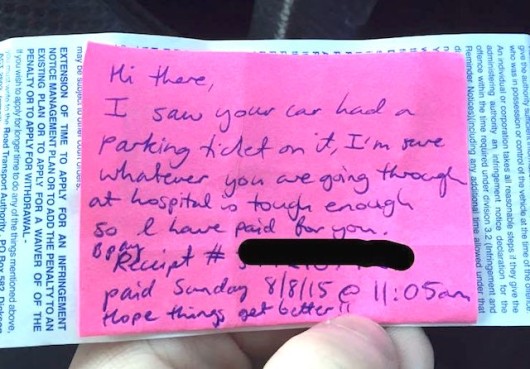 Hi there,
I saw your car had a
parking ticket on it, I'm sure
whatever you are going through
at hospital is tough enough
so I have paid for you.
Bpay
Receipt #
paid Sunday 8/8/15 @ 11:05am
Hope things get better!!
may be subject to other court orders.
EXTENSION OF TIME TO APPLY FOR AN INFRINGEMENT
NOTICE MANAGEMENT PLAN OR TO ADD THE PENALTY TO AN
EXISTING PLAN OR TO APPLY FOR A WAIVER OF OF THE
PENALTY OR TO APPLY FOR WITHDRAWAL -
If you wish to apply for longer time to do any of the things mentioned above,
Road Transport Authority, PO Box 582, Dickson
give the authority
who was in possession or control of the vehicle at the time of the offence.
An individual or corporation takes all reasonable steps if they give the
administering authority an infringement notice declaration for the
offence within the time required under division 3.2 (Infringement and
Reminder Notices)(including any additional time allowed under that